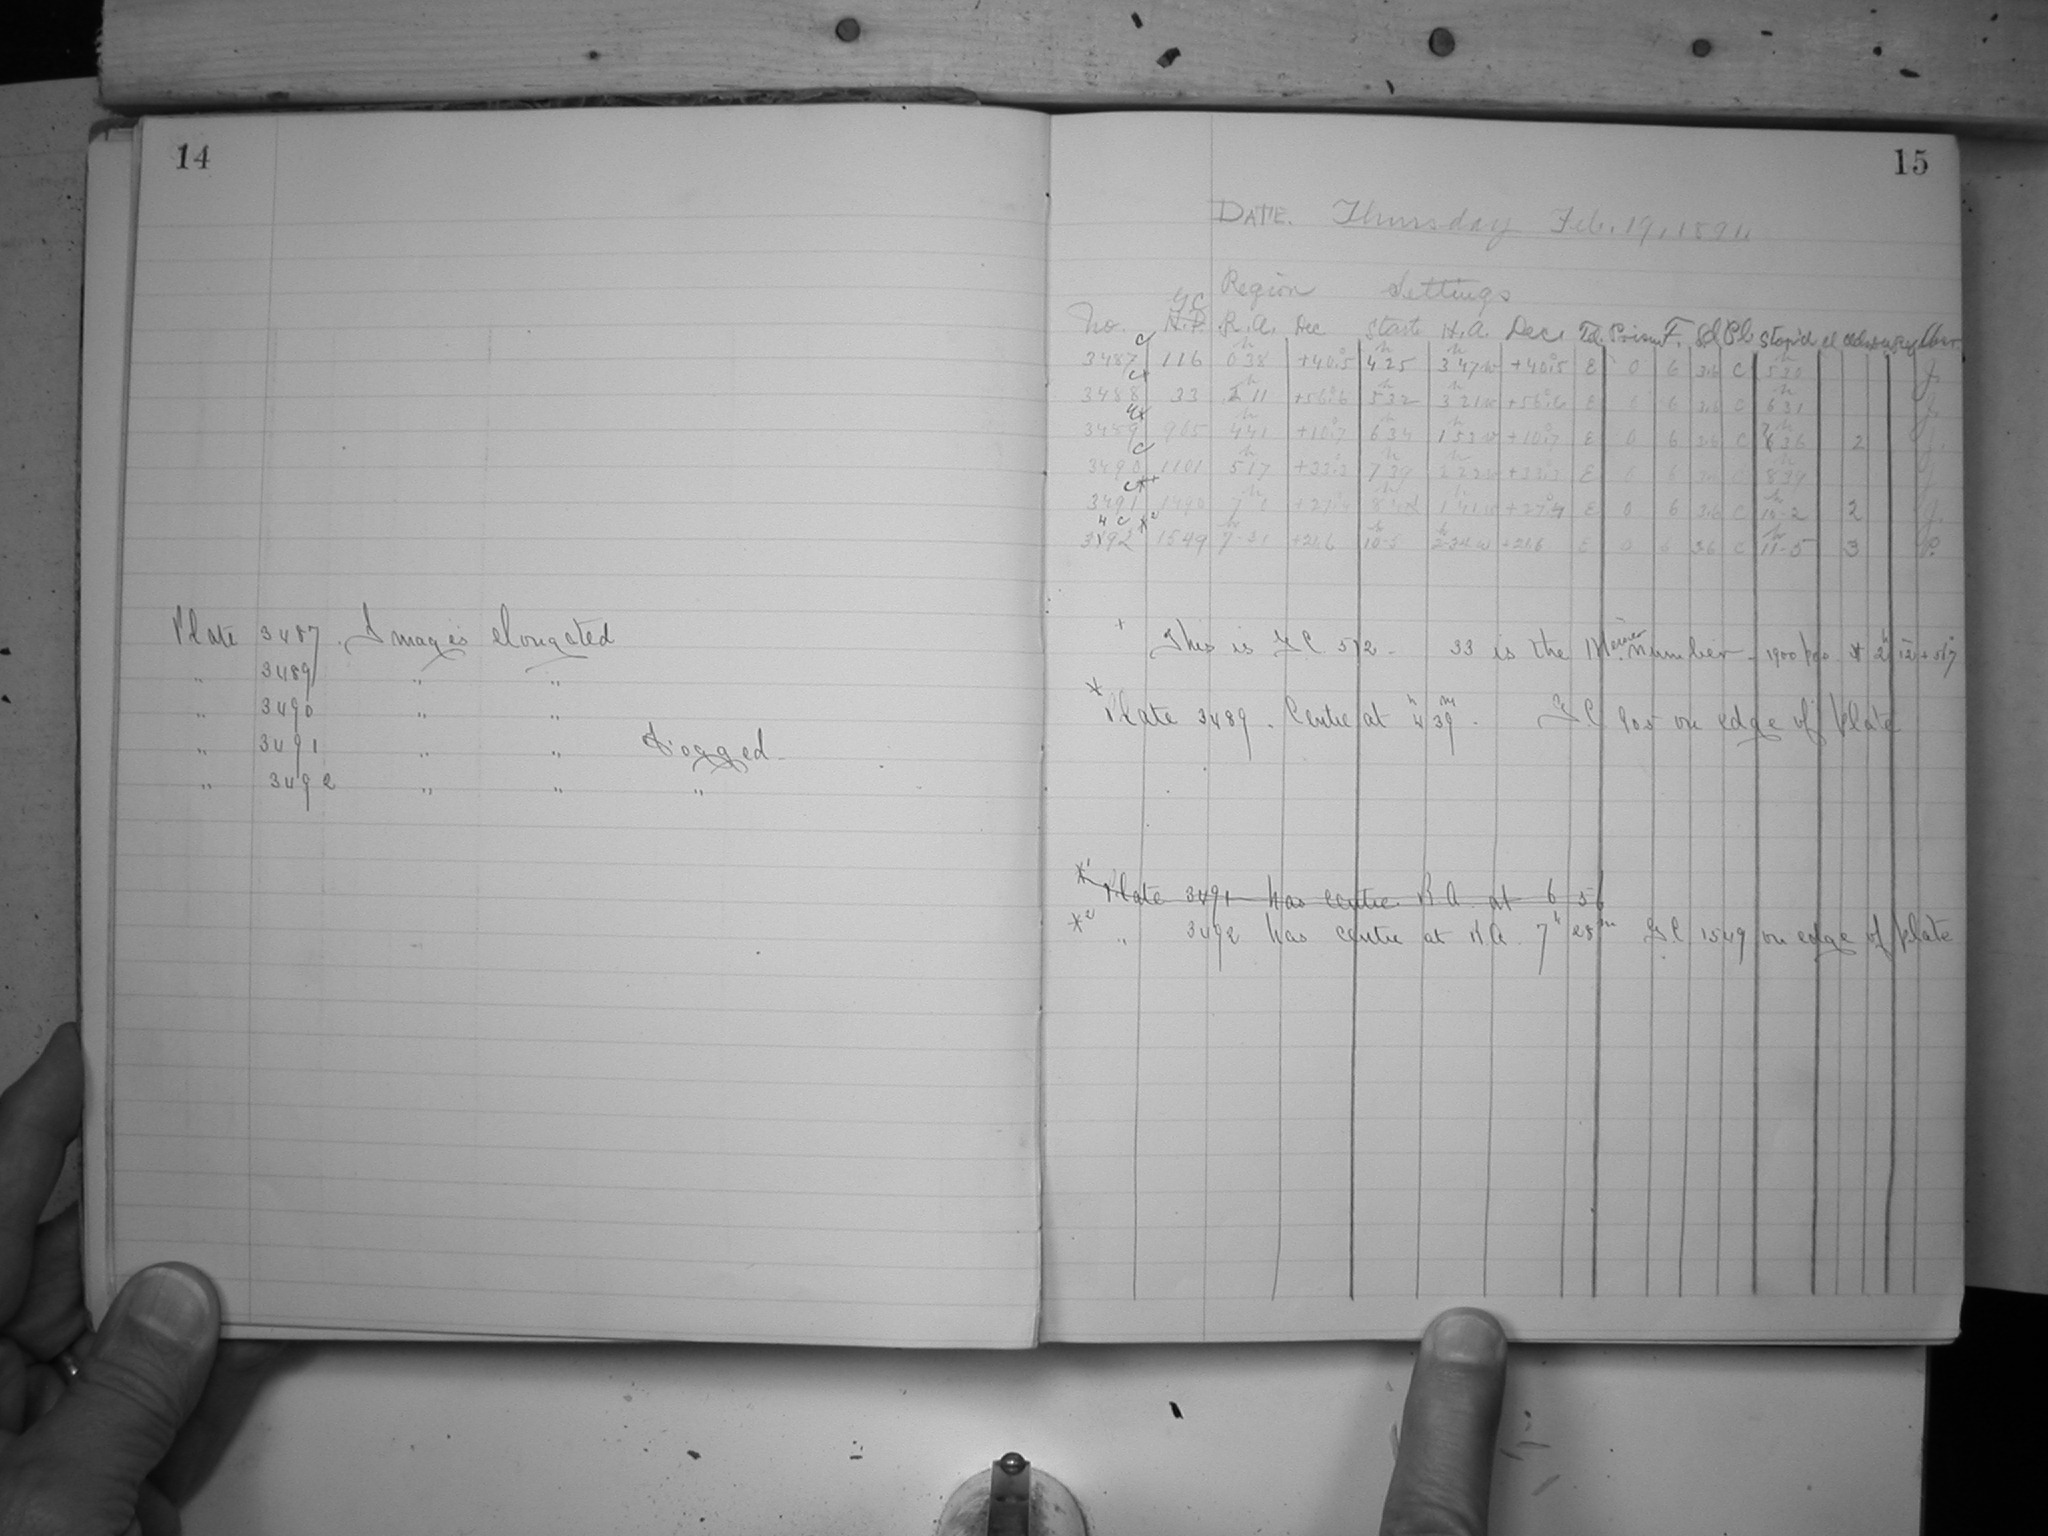 14
Plate 3487. Images elongated
„ 3489 „ „
„ 3490 „ „
„ 3491 „ „ Fogged
„ 3492 „ „ „
15
DATE. Thursday Feb. 19, 189
Region Settings
No. G.C. R.A. Dec Start H.A. Dec. Tel. Prism F. Sl Pl. Stop'd cl Obsr.
3487 c 116 0h 38 +40°.5 4h 25 3h 47w +40°.5 E 0 6 3.6 C 5h 30 J.
3488 c+ 33 2h 11 +56°.6 5h 32 3h 21w +56°.6 E 0 6 3.6 C 6h 31 J.
3489 905 4h 41 +10°.7 6h 34 1h 53w +10°.7 E 0 6 3.6 C 36 2 J.
3490 c 1101 5h 17 7h 39 2h 22w E 0 6 8h 39 J
3491 1490 7h 0 +27.4 1h 41w +27°.4 E 0 6 3.6 C 10h-2 2 J.
3492 *2 1549 7h-31 +21.6 10h-5 2h 34w +21.6 E 0 6 3.6 C 11h-5 3 P.
+ This is G C 512 - 33 is the number - 1900 pos. 2h 12m + 57
* Plate 3489. Centre at 4h 39m. G C 905 on edge of Plate
*1 Plate 3491 has centre R A at 6 56
*2 „ 3492 has centre at R A. 7h 28m G C 1549 on edge of Plate